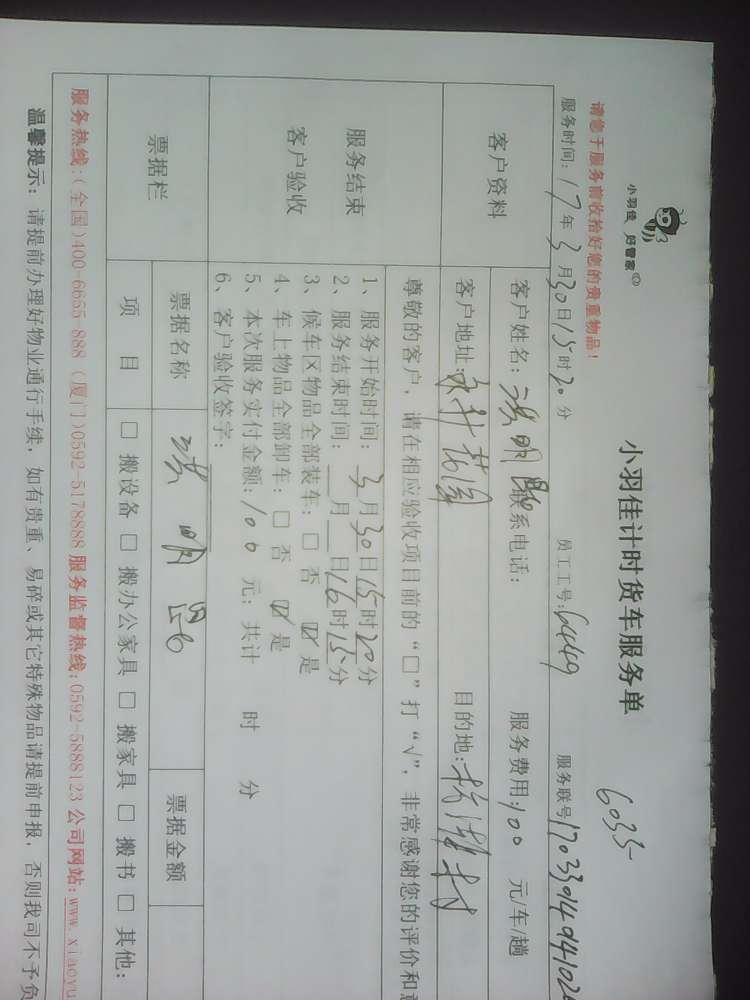 小羽佳 好管家
小羽佳计时货车服务单
6035
请您于服务前收拾好您的贵重物品!
服务时间:17年3月30日15时20分 员工工号:6449 服务联号
客户资料
客户姓名: 明 联系电话: 服务费用:100 元/车/趟
客户地址: 目的地: 村
服务结束
客户验收
尊敬的客户,请在相应验收项目前的“□”打“√”,非常感谢您的评价和
1、服务开始时间:3月30日15时20分
2、服务结束时间:__月__日16时15分
3、候车区物品全部装车:□ 否 ☑ 是
4、车上物品全部卸车:□ 否 ☑ 是
5、本次服务实付金额:100 元;共计 时 分
6、客户验收签字:
明
票据栏
票据名称 票据金额
项 目 □ 搬设备 □ 搬办公家具 □ 搬家具 □ 搬书 □ 其他:
服务热线:(全国)400-6655-888 (厦门)0592-5178888 服务监督热线:0592-5888123 公司网站:www.xiaoyu
温馨提示:请提前办理好物业通行手续,如有贵重、易碎或其它特殊物品请提前申报,否则我司不予负